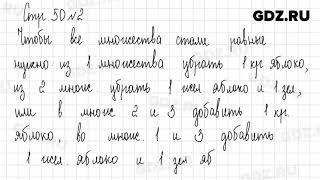 GDZ.RU
Стр 50 №2
Чтобы все множества стали равные
нужно из 1 множества убрать 1 кр яблоко,
из 2 множ убрать 1 жел яблоко и 1 зел,
или в множ 2 и 3 добавить 1 кр.
яблоко, во множ. 1 и 3 добавить
1 жел. яблоко и 1 зел яб
GDZ.RU